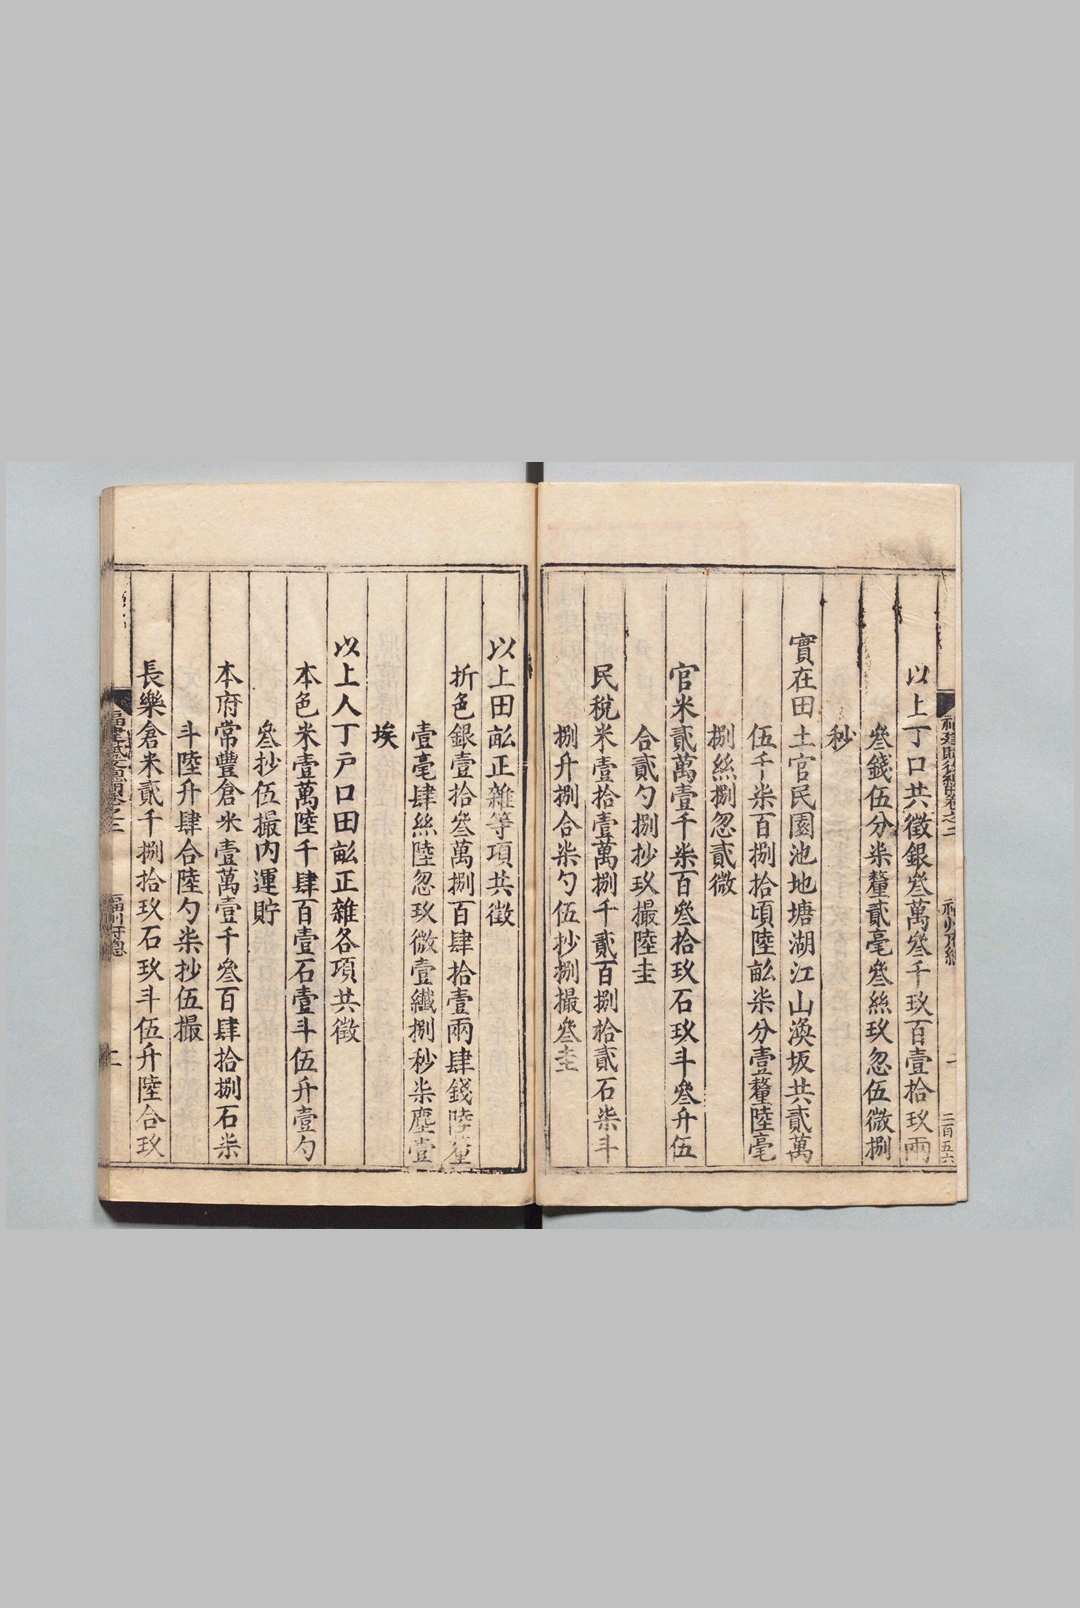 以上丁口共徵銀叄萬叄千玖百壹拾玖兩
叄錢伍分柒釐貳毫叄絲玖忽伍微捌
秒
實在田土官民園池地塘湖江山渙坂共貳萬
伍千柒百捌拾頃陸畝柒分壹釐陸毫
捌絲捌忽貳微
官米貳萬壹千柒百叄拾玖石玖斗叄升伍
合貳勺捌抄玖撮陸圭
民稅米壹拾壹萬捌千貳百捌拾貳石柒斗
捌升捌合柒勺伍抄捌撮叄圭
以上田畝正雜等項共徵
折色銀壹拾叄萬捌百肆拾壹兩肆錢陸釐
壹毫肆絲陸忽玖微壹纖捌秒柒塵壹
埃
以上人丁戶口田畝正雜各項共徵
本色米壹萬陸千肆百壹石壹斗伍升壹勺
叄抄伍撮內運貯
本府常豐倉米壹萬壹千叄百肆拾捌石柒
斗陸升肆合陸勺柒抄伍撮
長樂倉米貳千捌拾玖石玖斗伍升陸合玖